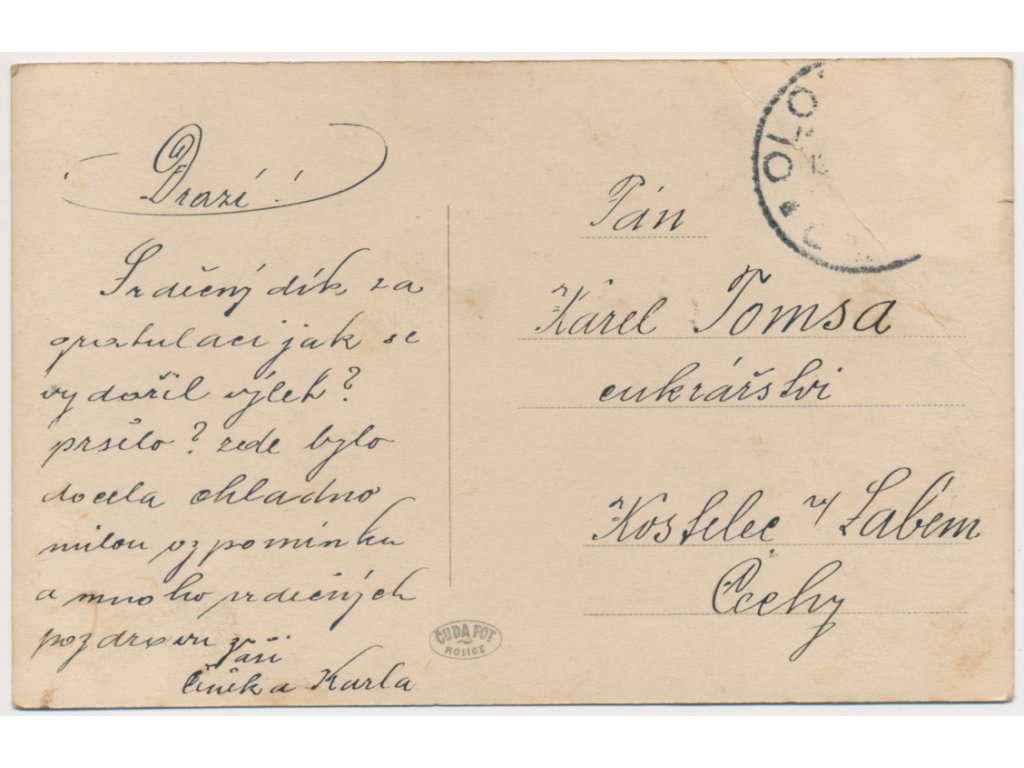 Drazí!
Srdečný dík za
gratulaci jak se
vydařil výlet?
pršelo? zde bylo
docela chladno
milou vzpomínku
a mnoho srdečných
pozdravu
Vaši
a Karla
ČUDA FOT
HOLICE
Pán
Karel Tomsa
cukrářství
Kostelec n/ Labem
Čechy